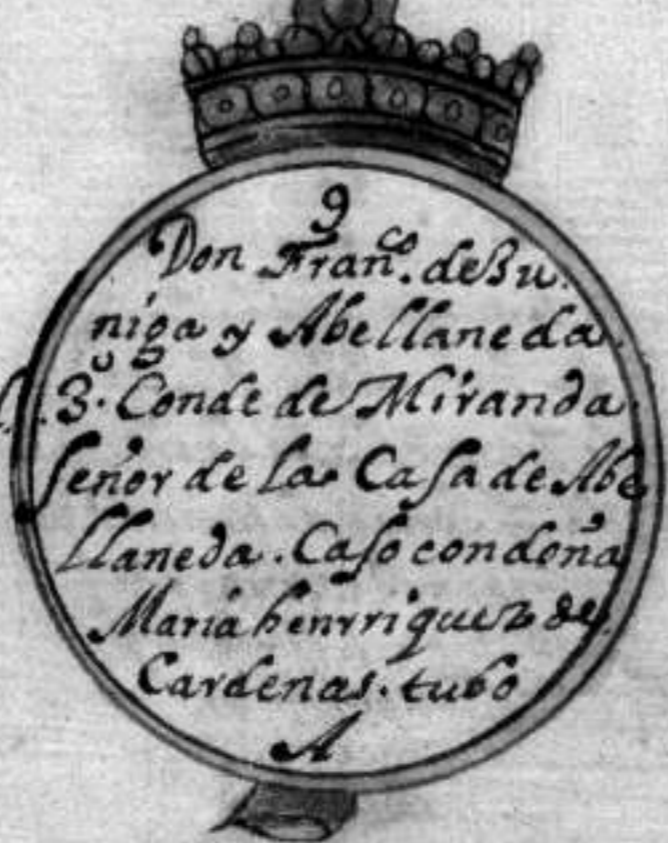 9
Don Fran.co de Zu
niga y Abellaneda
3.o Conde de Miranda
señor de la Casa de Abe
llaneda. Caso con doña
Maria henrriquez de
Cardenas. tubo
A